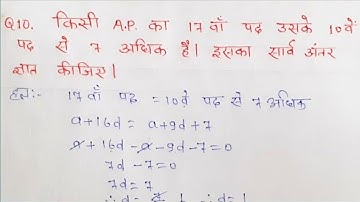 Q10. किसी A.P. का 17 वाँ पद उसके 10 वें
पद से 7 अधिक है। इसका सार्व अंतर
ज्ञात कीजिए।
हल:- 17 वाँ पद = 10 वें पद से 7 अधिक
a+16d = a+9d+7
a+16d-a-9d-7=0
7d-7=0
7d=7
∴d=7/7=1 ∴d=1